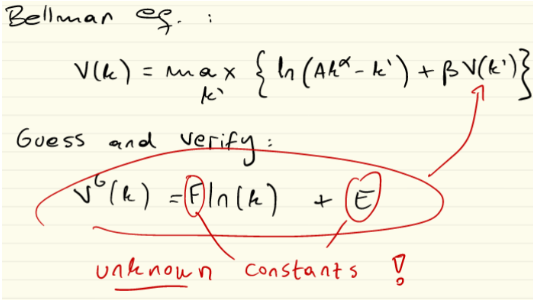 Bellman eq. :
V(k) = max { ln(Ak^α - k') + βV(k') }
k'
Guess and verify:
V^G(k) = F ln(k) + E
unknown constants !